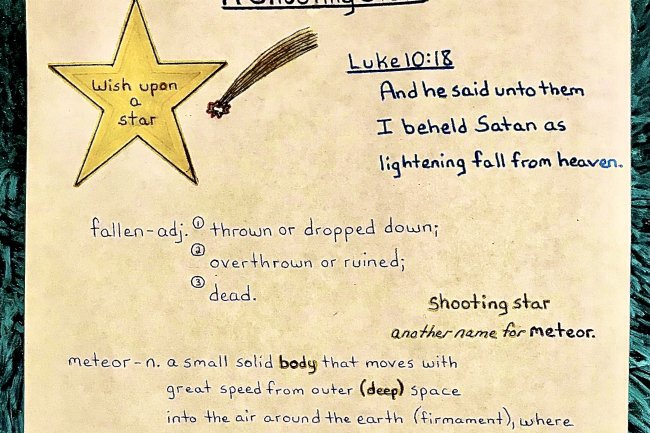 A Shooting Star
Wish upon
a
star
Luke 10:18
And he said unto them
I beheld Satan as
lightening fall from heaven.
fallen-adj. ① thrown or dropped down;
② overthrown or ruined;
③ dead.
Shooting star
another name for meteor.
meteor-n. a small solid body that moves with
great speed from outer (deep) space
into the air around the earth (firmament), where